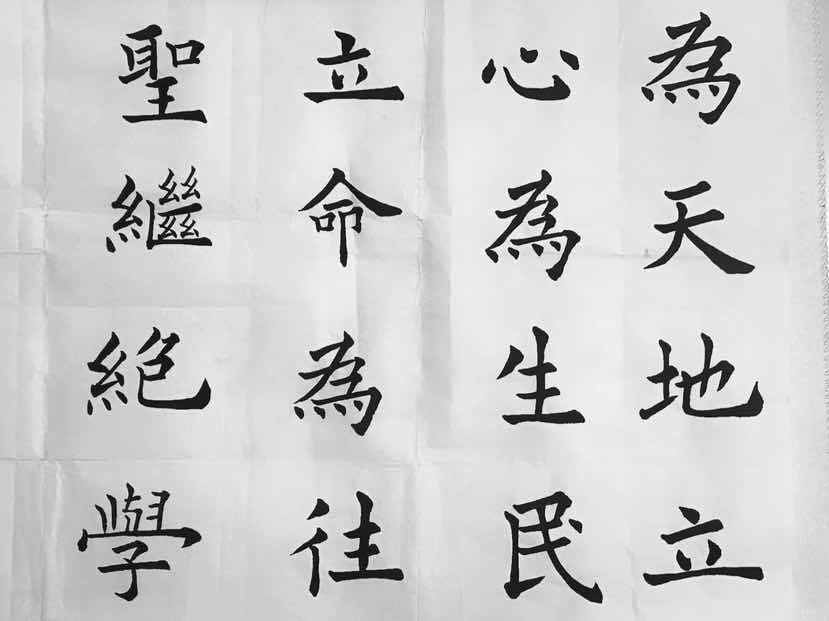 為天地立
心為生民
立命為往
聖繼絕學